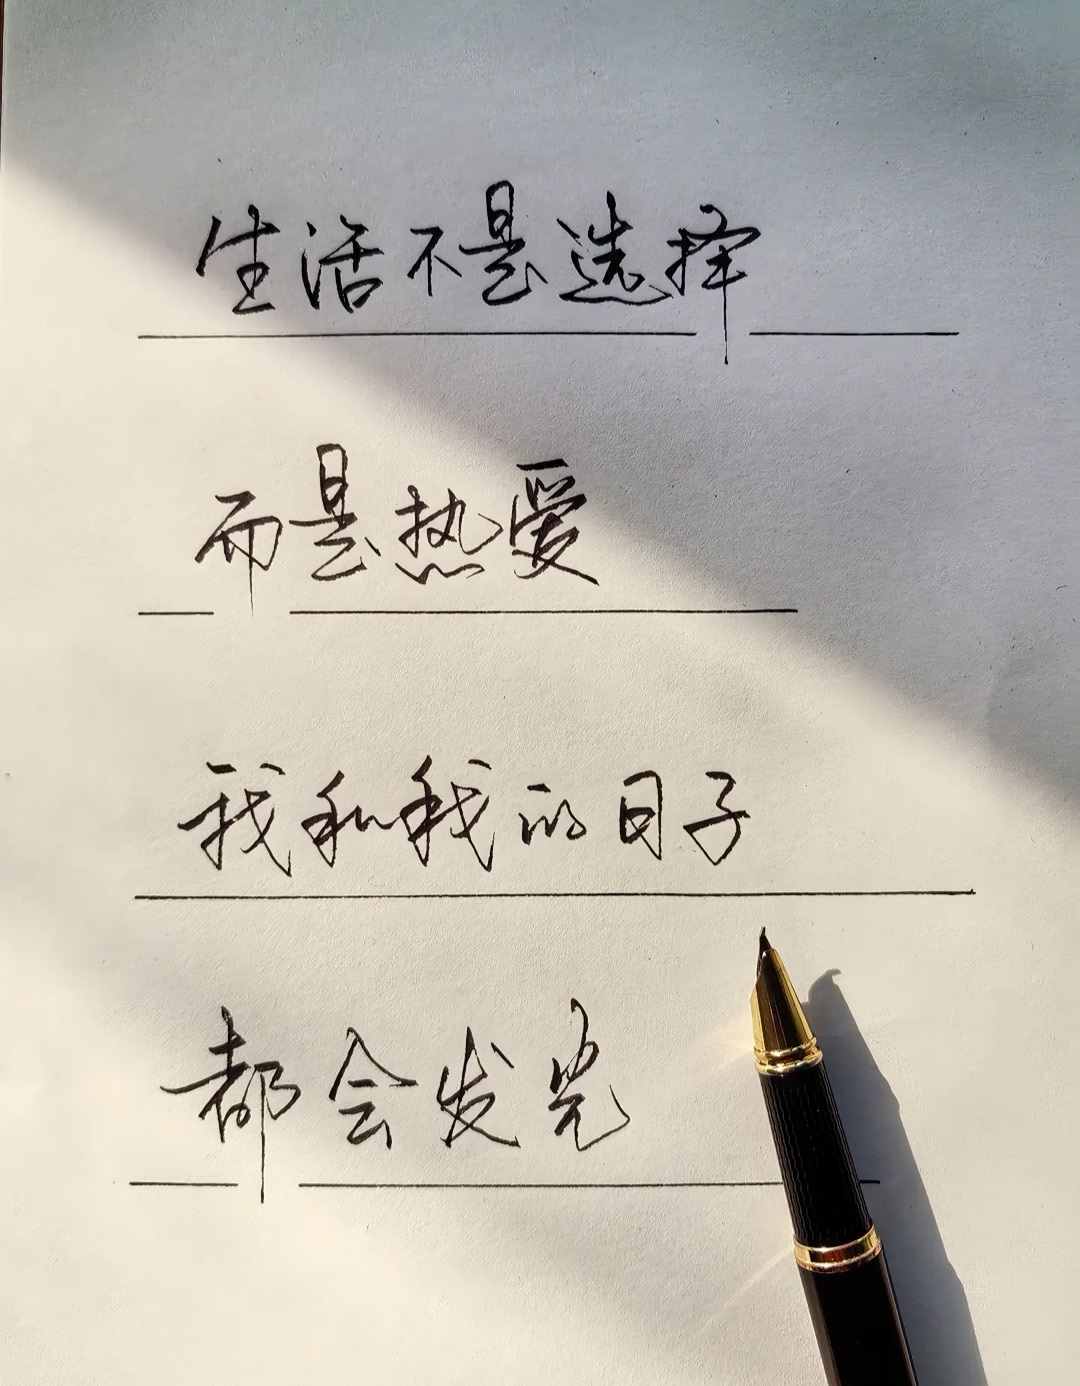 生活不是选择
而是热爱
我和我的日子
都会发光